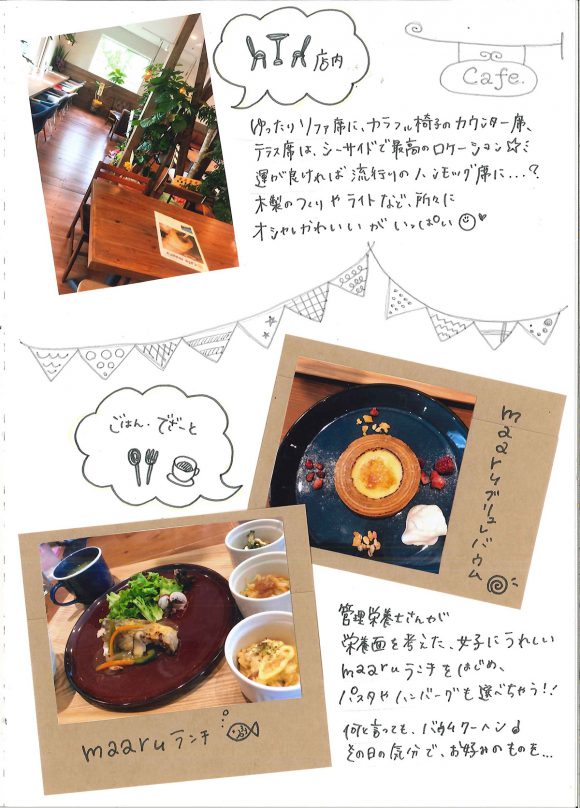 店内
Cafe.
ゆったりソファ席に、カラフル椅子のカウンター席、
テラス席は、シーサイドで最高のロケーション☆ミ
運が良ければ流行りのハンモック席に...?
木製のつくりやライトなど、所々に
オシャレかわいいがいっぱい
ごはん・でざーと
maaruブリュレバウム
maaruランチ
管理栄養士さんが
栄養面を考えた、女子にうれしい
maaruランチをはじめ、
パスタやハンバーグも選べちゃう!!
何と言っても、バウムクーヘン♪
その日の気分で、お好みのものを...